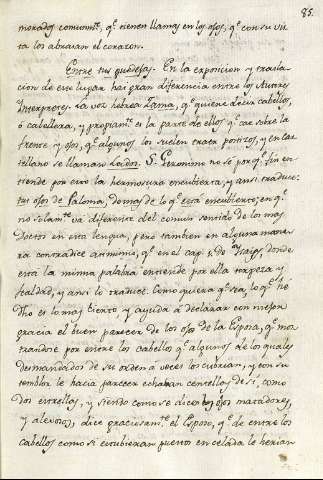 85.
morados comunmte, qe tienen llamas en los ojos, qe con su vis
ta los abrasan el corazon.
Entre tus guedejas. En la exposicion y trasla
cion de este lugar hai gran diferencia entre los Autores
Interpretes. La voz hebrea Zama, qe quiere decir cabellos,
ó cabellera, y propiamte es la parte de ellos qe cae sobre la
frente y ojos, qe algunos los suelen traer postizos, y en cas
tellano se llaman Lados. S. Geronimo no sé por qe fin en
tiende por esto la hermosura encubierta, y ansi traduce:
tus ojos de Paloma, demas de lo qe está encubierto; en qe
no solamte va diferente del comun sentido de los mas
doctos en esta lengua, peró tambien en alguna mane
ra contradice asimismo, qe en el cap. de Isaías, donde
está la misma palabra entiende por ella torpeza y
fealdad, y ansi lo traduce. Como quiera qe sea, lo qe he
dho es lo mas cierto y ayuda á declarar con mejor
gracia el buen parecer de los ojos de la Esposa, qe mos
trandose por entre los cabellos qe algunos de los quales
desmandados de su orden a veces los cubrian, y con su
temblor le hacia parecer echaban centellas de si, como
dos estrellas, y siendo como se dice los ojos matadores,
y alevosos, dice graciosamte el Esposo, qe de entre los
cabellos como si estubieran puestos en celada le herian